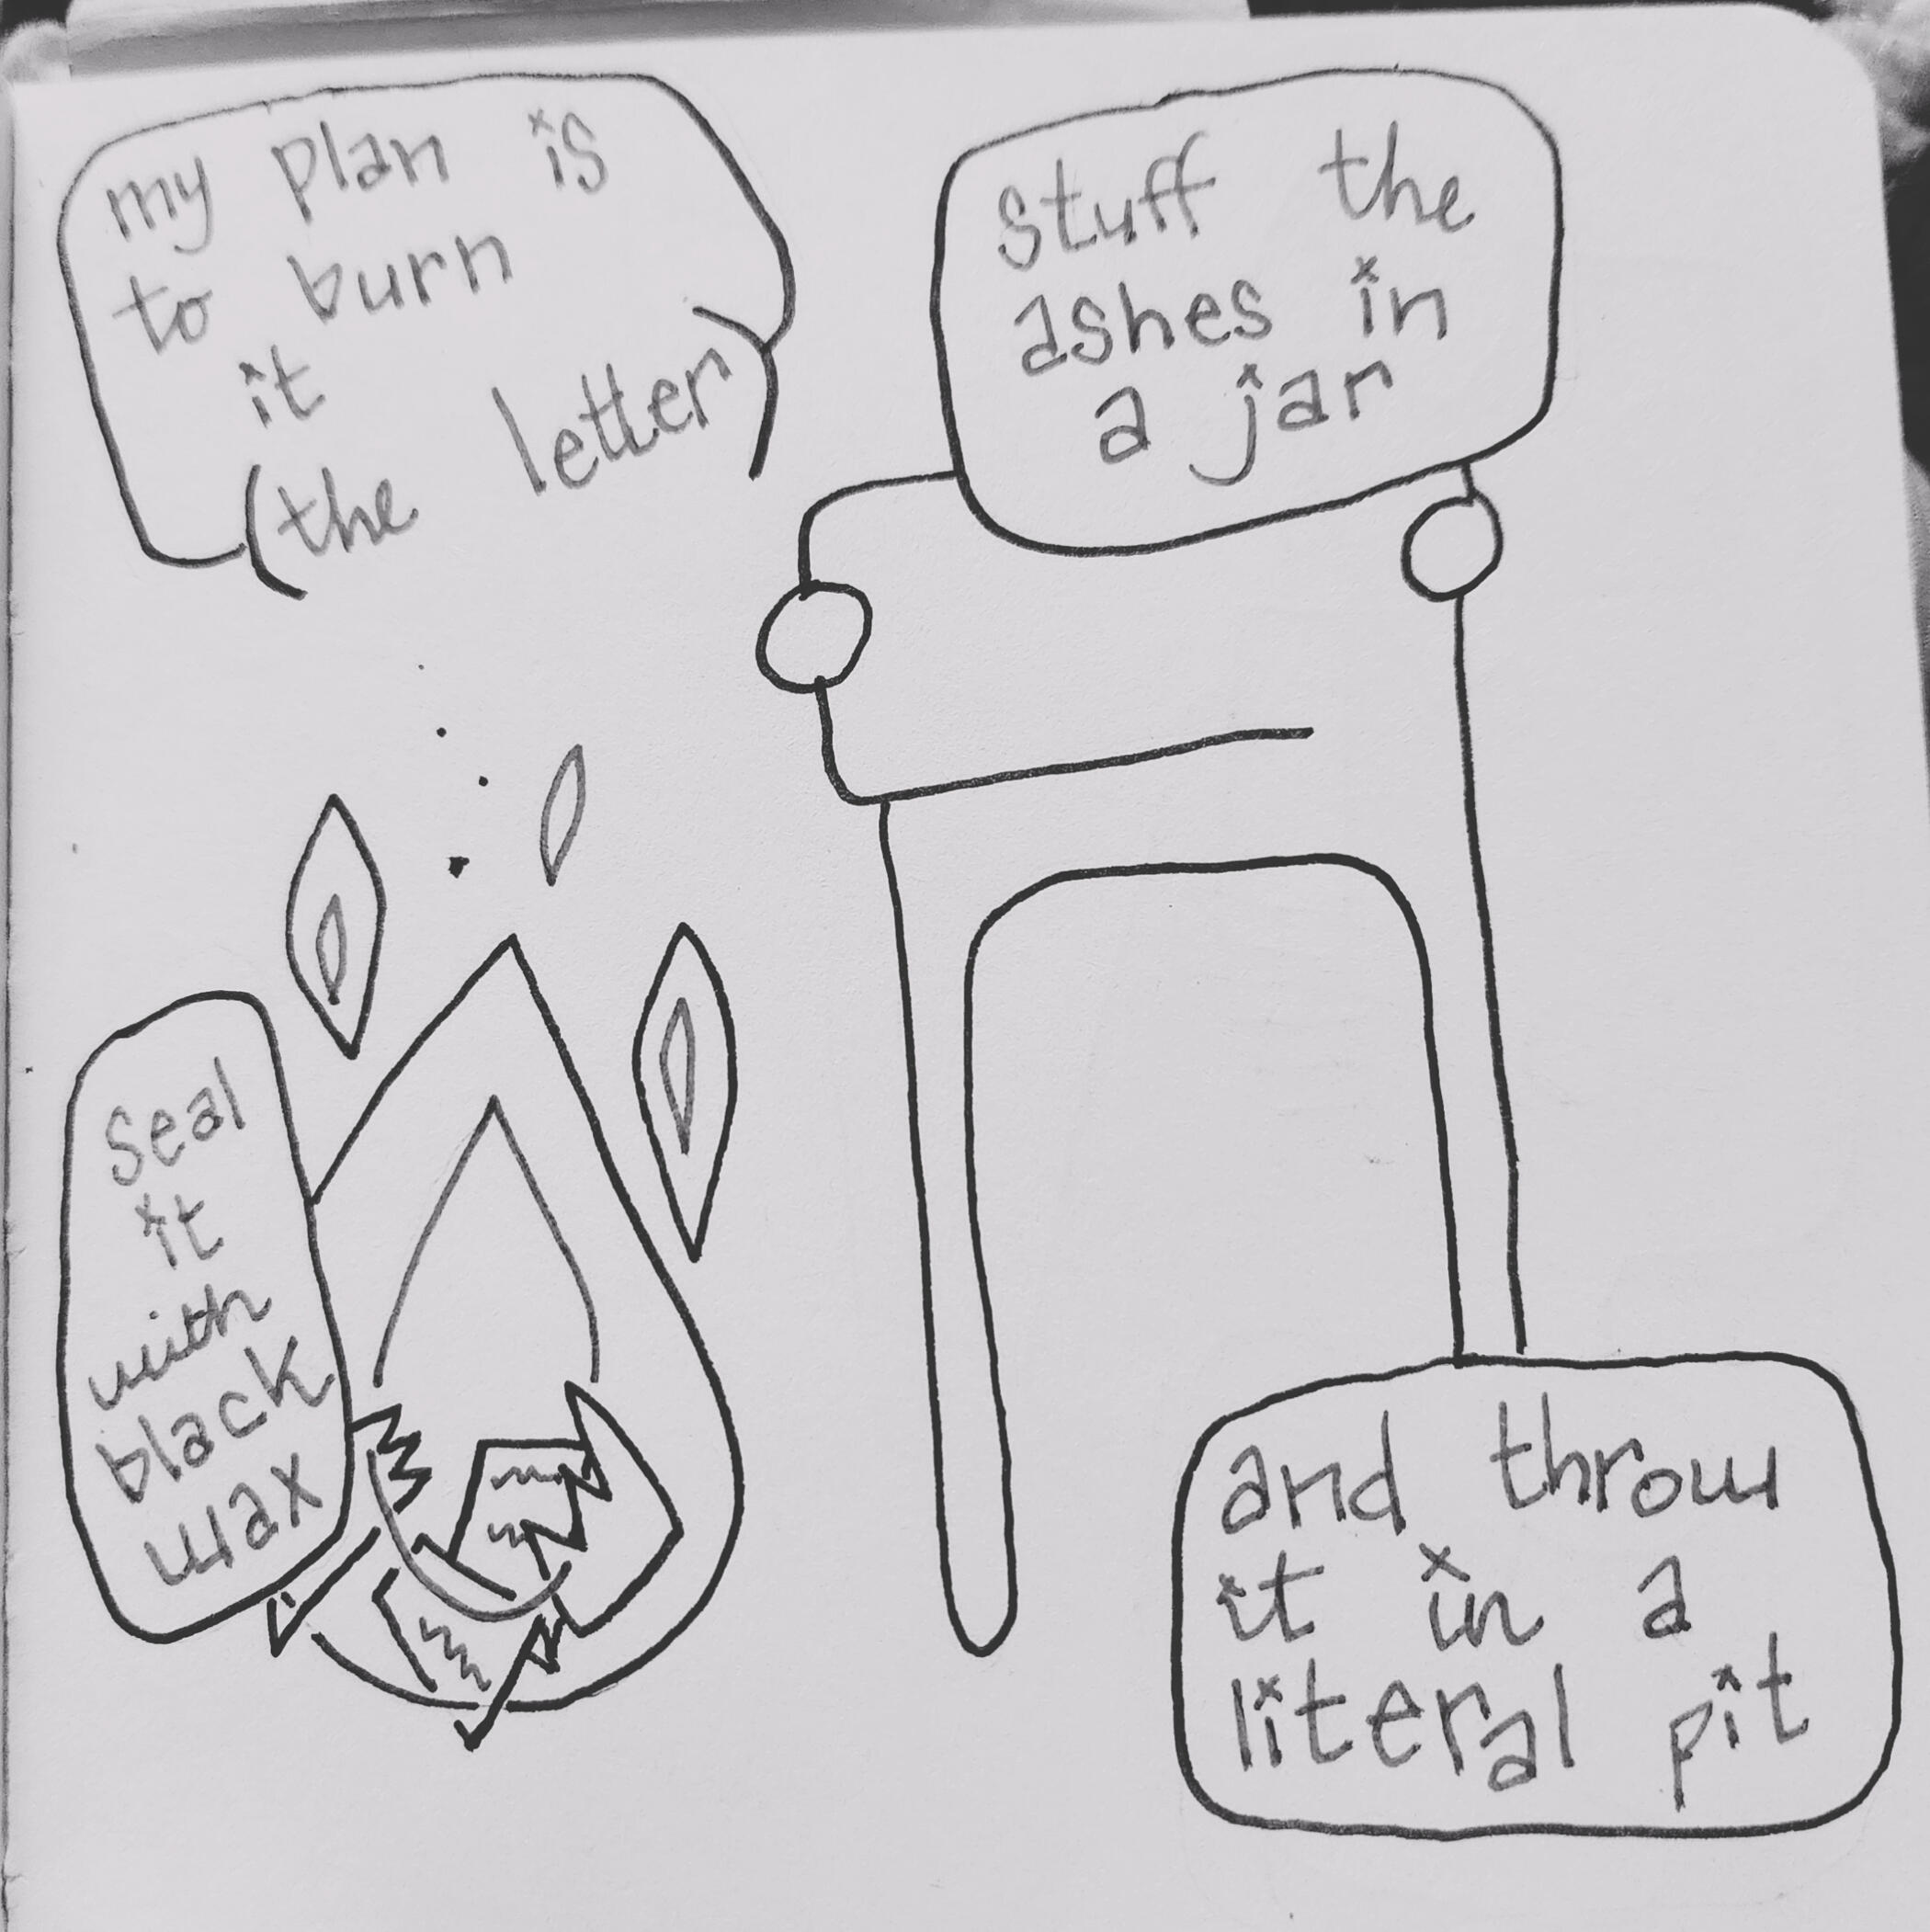 my plan is
to burn
it
(the letter)
stuff the
ashes in
a jar
seal
it
with
black
wax
and throw
it in a
literal pit